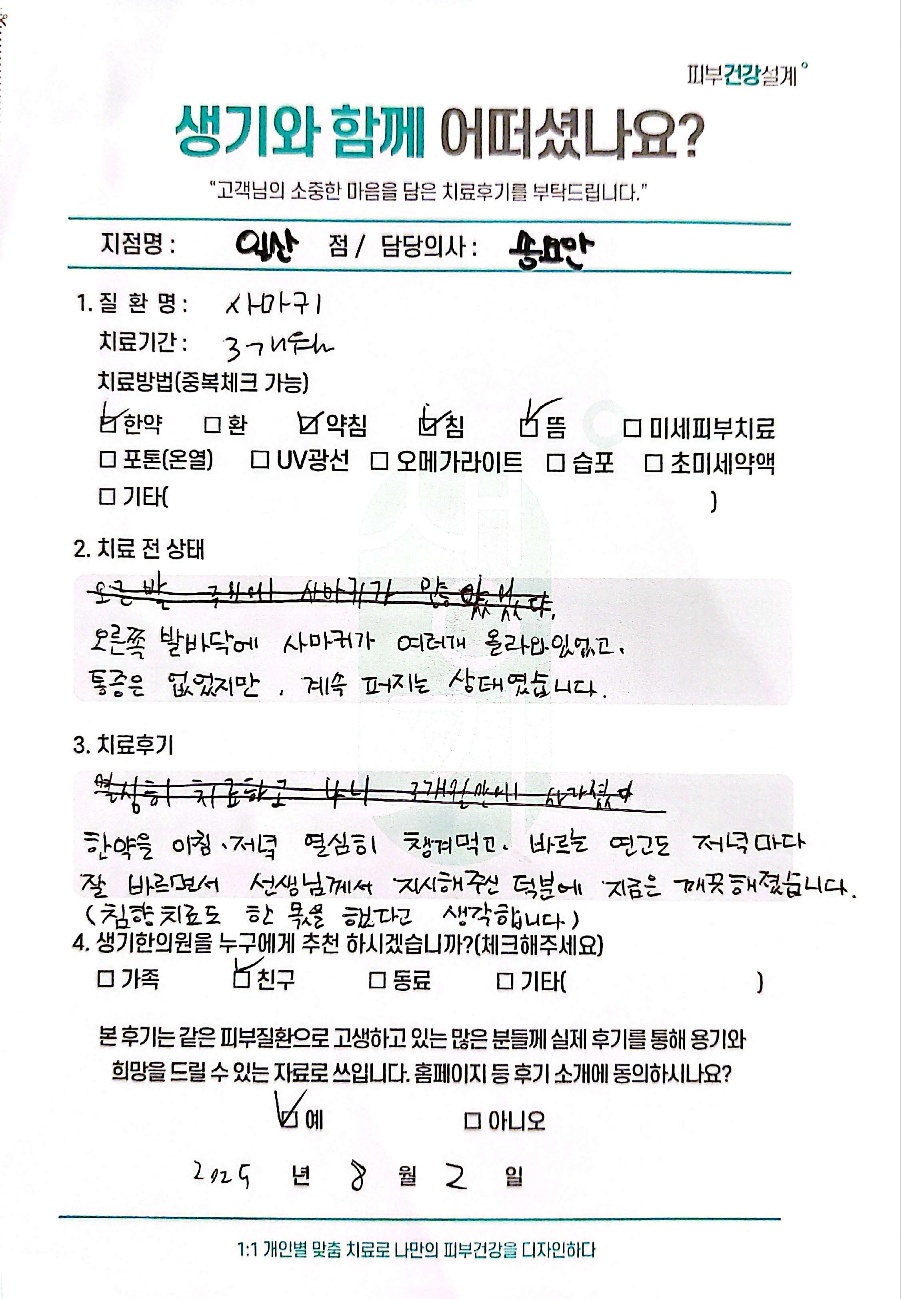 피부건강설계
생기와 함께 어떠셨나요?
"고객님의 소중한 마음을 담은 치료후기를 부탁드립니다."
지점명 : 일산 점 / 담당의사 :
1. 질 환 명 : 사마귀
치료기간 : 3개월
치료방법(중복체크 가능)
☑ 한약 □ 환 ☑ 약침 ☑ 침 ☑ 뜸 □ 미세피부치료
□ 포톤(온열) □ UV광선 □ 오메가라이트 □ 습포 □ 초미세약액
□ 기타( )
2. 치료 전 상태
사마귀가
오른쪽 발바닥에 사마귀가 여러개 올라와있었고,
통증은 없었지만, 계속 퍼지는 상태였습니다.
3. 치료후기
열심히 치료하고 나니 3개월만에 사라졌다
한약을 아침·저녁 열심히 챙겨먹고. 바르는 연고도 저녁마다
잘 바르면서 선생님께서 지시해주신 덕분에 지금은 깨끗해졌습니다.
(침향치료도 한 몫을 했다고 생각합니다.)
4. 생기한의원을 누구에게 추천 하시겠습니까?(체크해주세요)
□ 가족 ☑ 친구 □ 동료 □ 기타( )
본 후기는 같은 피부질환으로 고생하고 있는 많은 분들께 실제 후기를 통해 용기와
희망을 드릴 수 있는 자료로 쓰입니다. 홈페이지 등 후기 소개에 동의하시나요?
☑ 예 □ 아니오
2025 년 8 월 2 일
1:1 개인별 맞춤 치료로 나만의 피부건강을 디자인하다